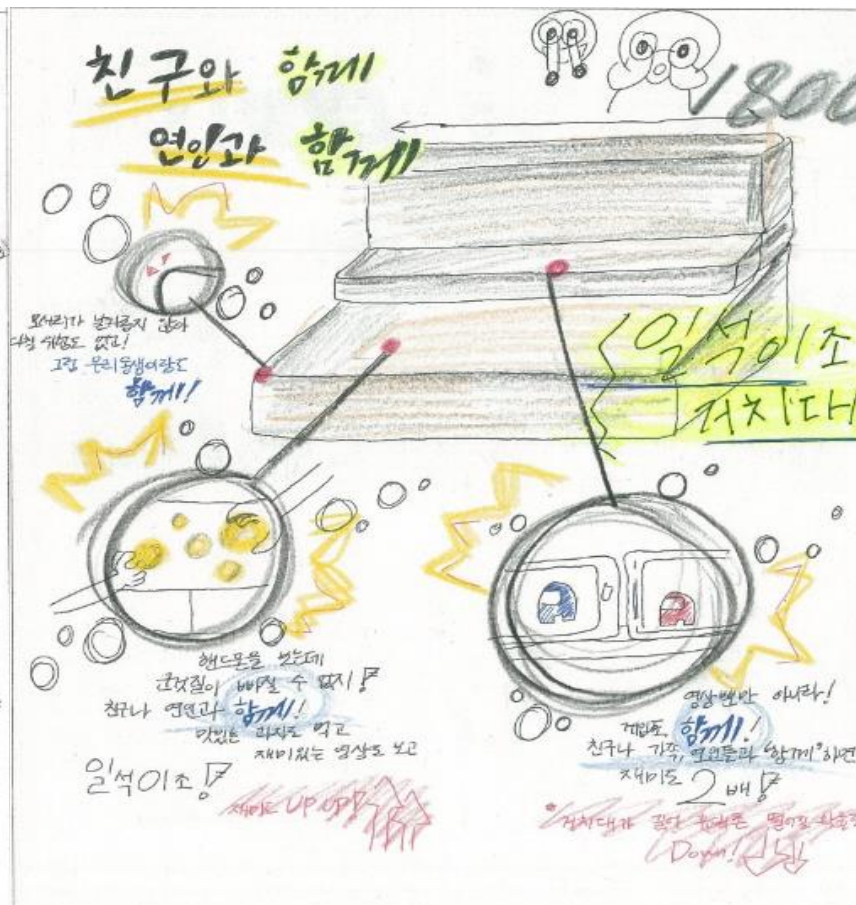 친구와 함께
연인과 함께
1800
일석이조
거치대
모서리가 날카롭지 않아
다칠 위험도 없고!
그럼 우리동생이랑도
함께!
핸드폰을 보는데
군것질이 빠질 수 없지!
친구나 연인과 함께!
맛있는 과자도 먹고
재미있는 영상도 보고
일석이조!
재미도 UP UP!
영상뿐만 아니라!
게임도, 함께!
친구나 가족, 연인들과 "함께"하면
재미도 2배!
거치대가 길어 떨어질
Down!